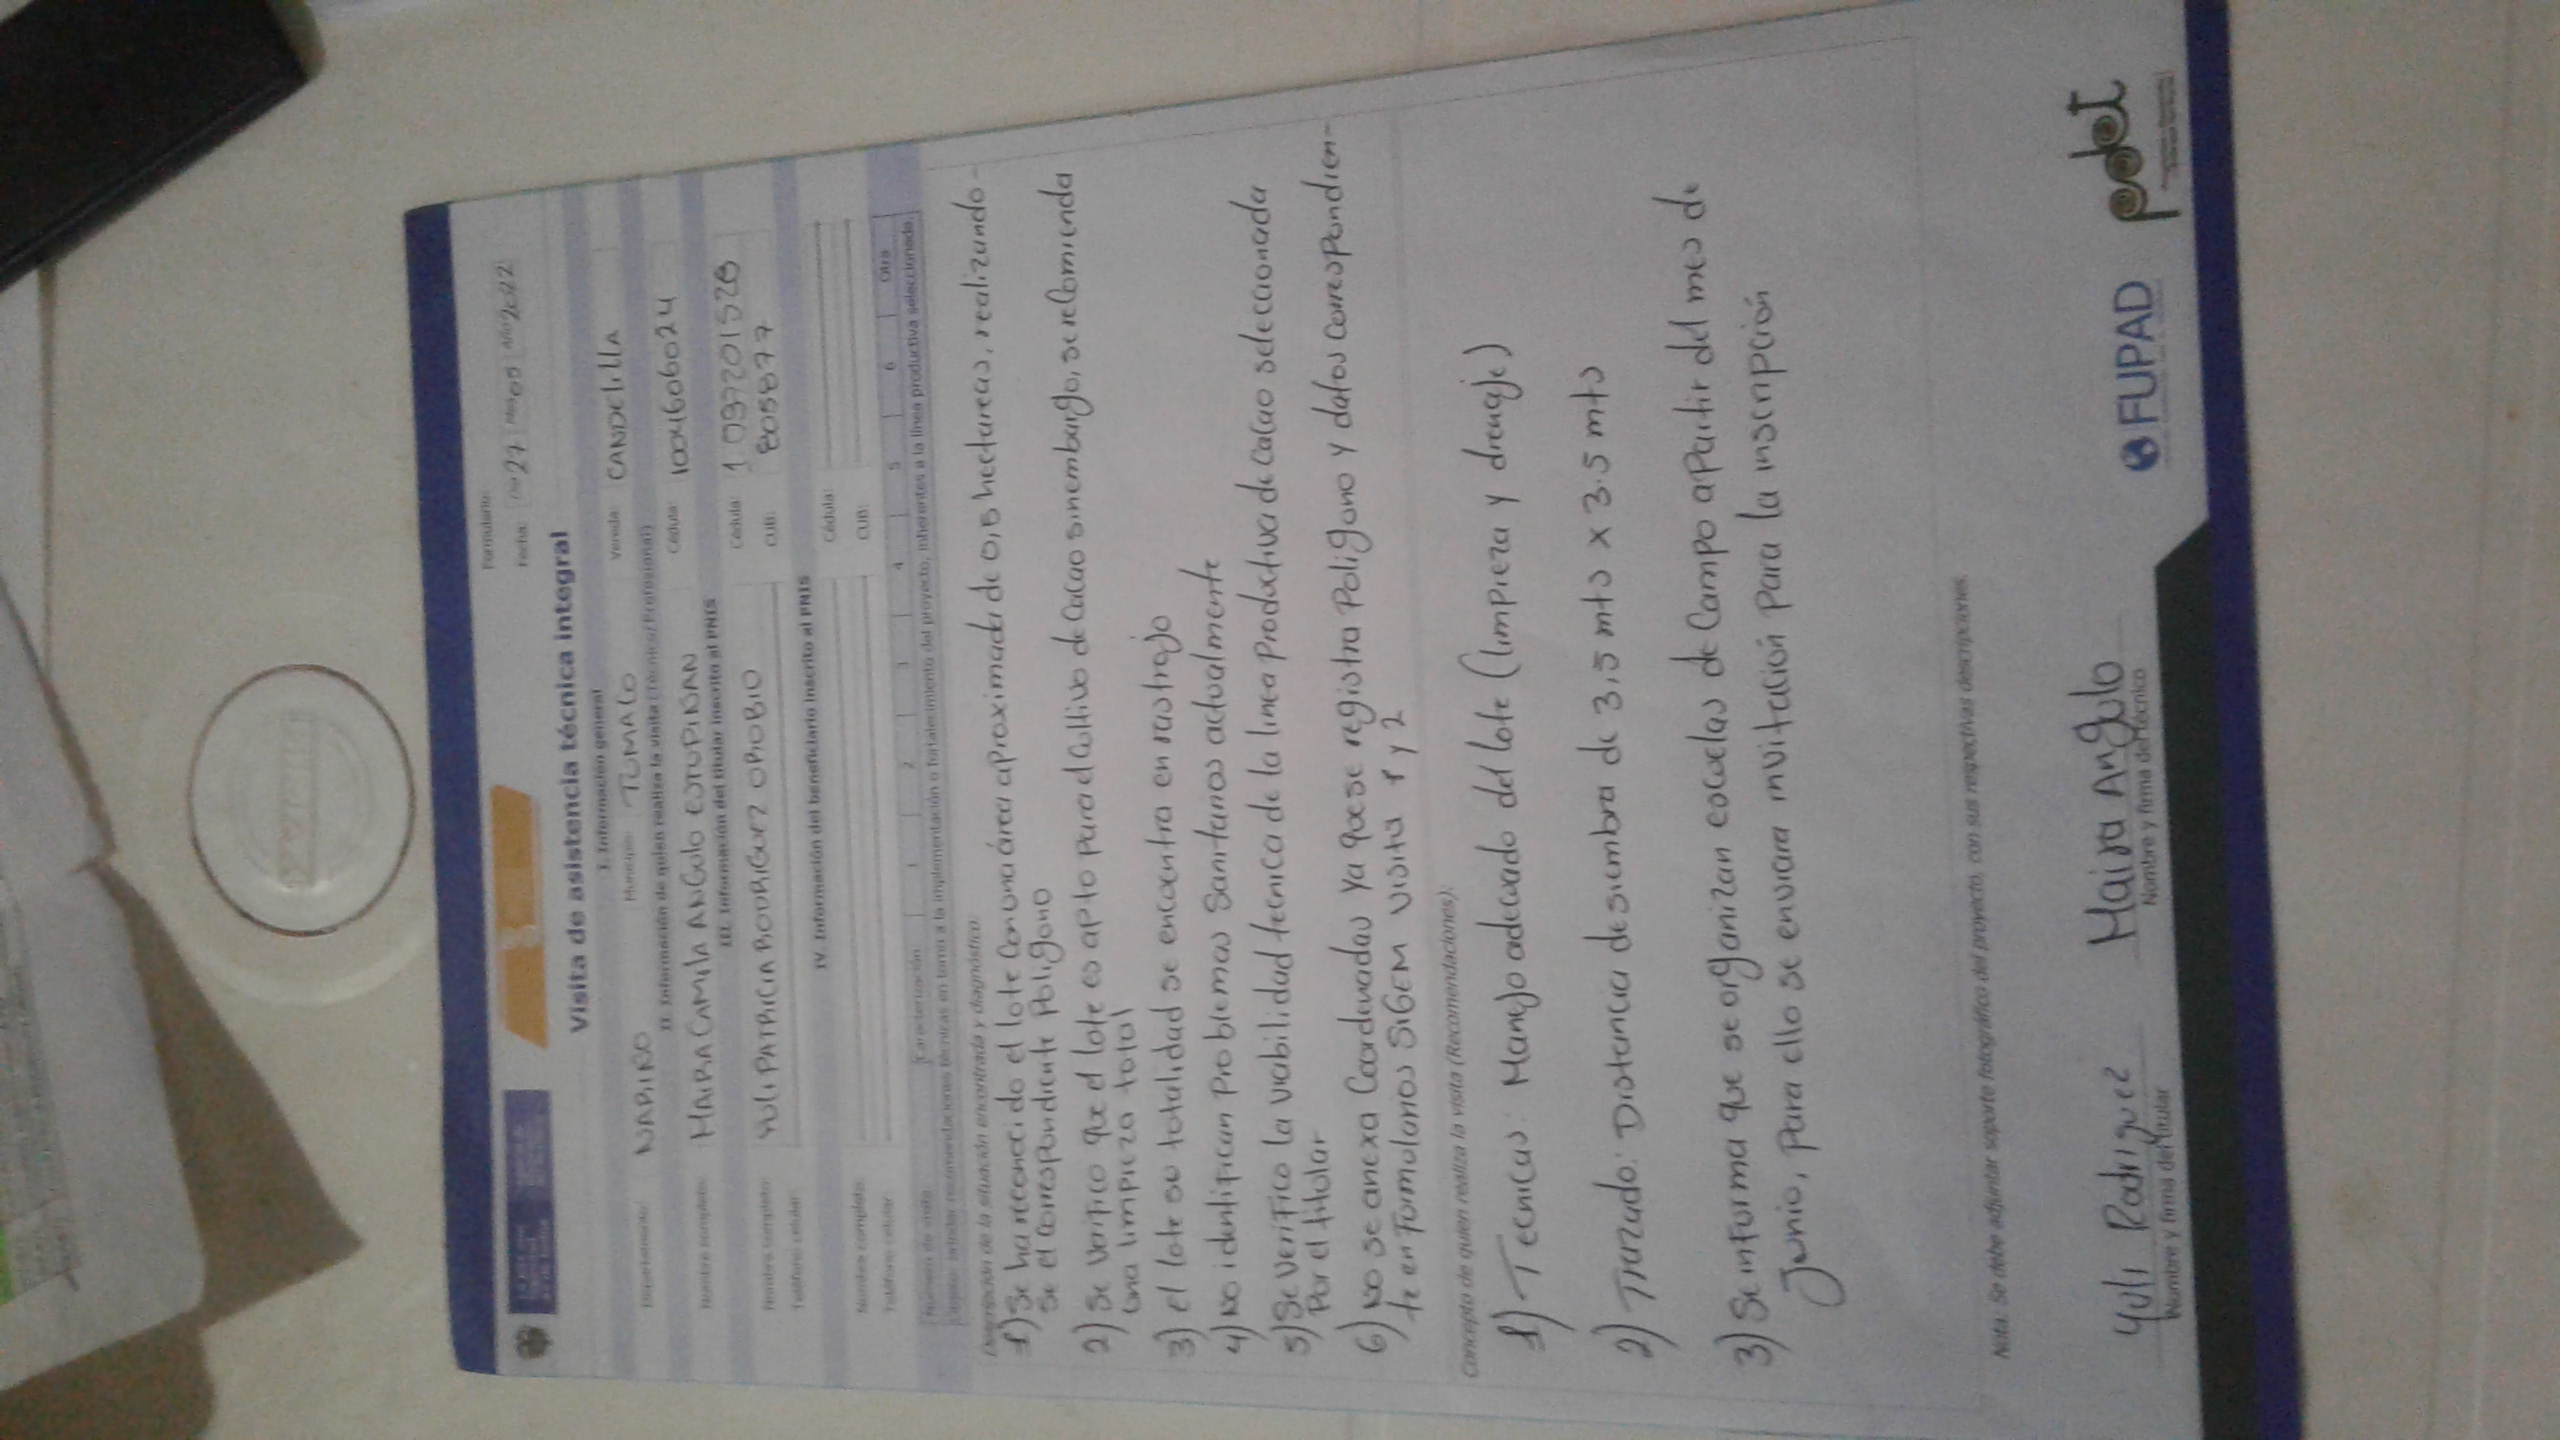 Formulario:
Fecha: Día 27 Mes 05 Año 2022
Visita de asistencia técnica integral
I. Información general
Departamento: NARIÑO Municipio: TUMACO Vereda: CANDELILLA
II. Información de quien realiza la visita (Técnico/Profesional)
Nombre completo: MAIRA CAMILA ANGULO ESTUPIÑAN Cédula: 1004606024
III. Información del titular inscrito al PNIS
Nombre completo: YULI PATRICIA RODRIGUEZ OROBIO Cédula:
Teléfono celular: CUB:
IV. Información del beneficiario inscrito al PNIS
Nombre completo: Cédula:
Teléfono celular: CUB:
Número de visita: Caracterización 1 2 3 4 5 6 Otra
recomendaciones técnicas en torno a la implementación o fortalecimiento del proyecto, inherentes a la línea productiva seleccionada.
Descripción de la situación encontrada y diagnóstico:
1) Se ha reconocido el lote con una área aproximada de 0,5 hectareas, realizando-
se el correspondiente Poligono
2) Se Verifico que el lote es apto para el Cultivo de Cacao sin embargo, se recomienda
una limpieza total
3) el lote su totalidad se encuentra en rastrojo
4) No identifican Problemas Sanitarios actualmente
5) Se Verifico la viabilidad tecnica de la linea Productiva de Cacao seleccionada
Por el titular
6) No se anexa Coordenadas ya que se registra Poligono y datos correspondien-
te en Formularios SIGEM visita 1 y 2
Concepto de quien realiza la visita (Recomendaciones):
1) Tecnicas: Manejo adecuado del lote (limpieza y drenaje)
2) Trazado: Distancia de siembra de 3,5 mts x 3.5 mts
3) Se informa que se organizan escuelas de Campo apartir del mes de
Junio, para ello se enviara invitación Para la inscripción
Nota: Se debe adjuntar soporte fotográfico del proyecto, con sus respectivas descripciones.
Yuli Rodriguez Maira Angulo
Nombre y firma del titular Nombre y firma del técnico
FUPAD pdet